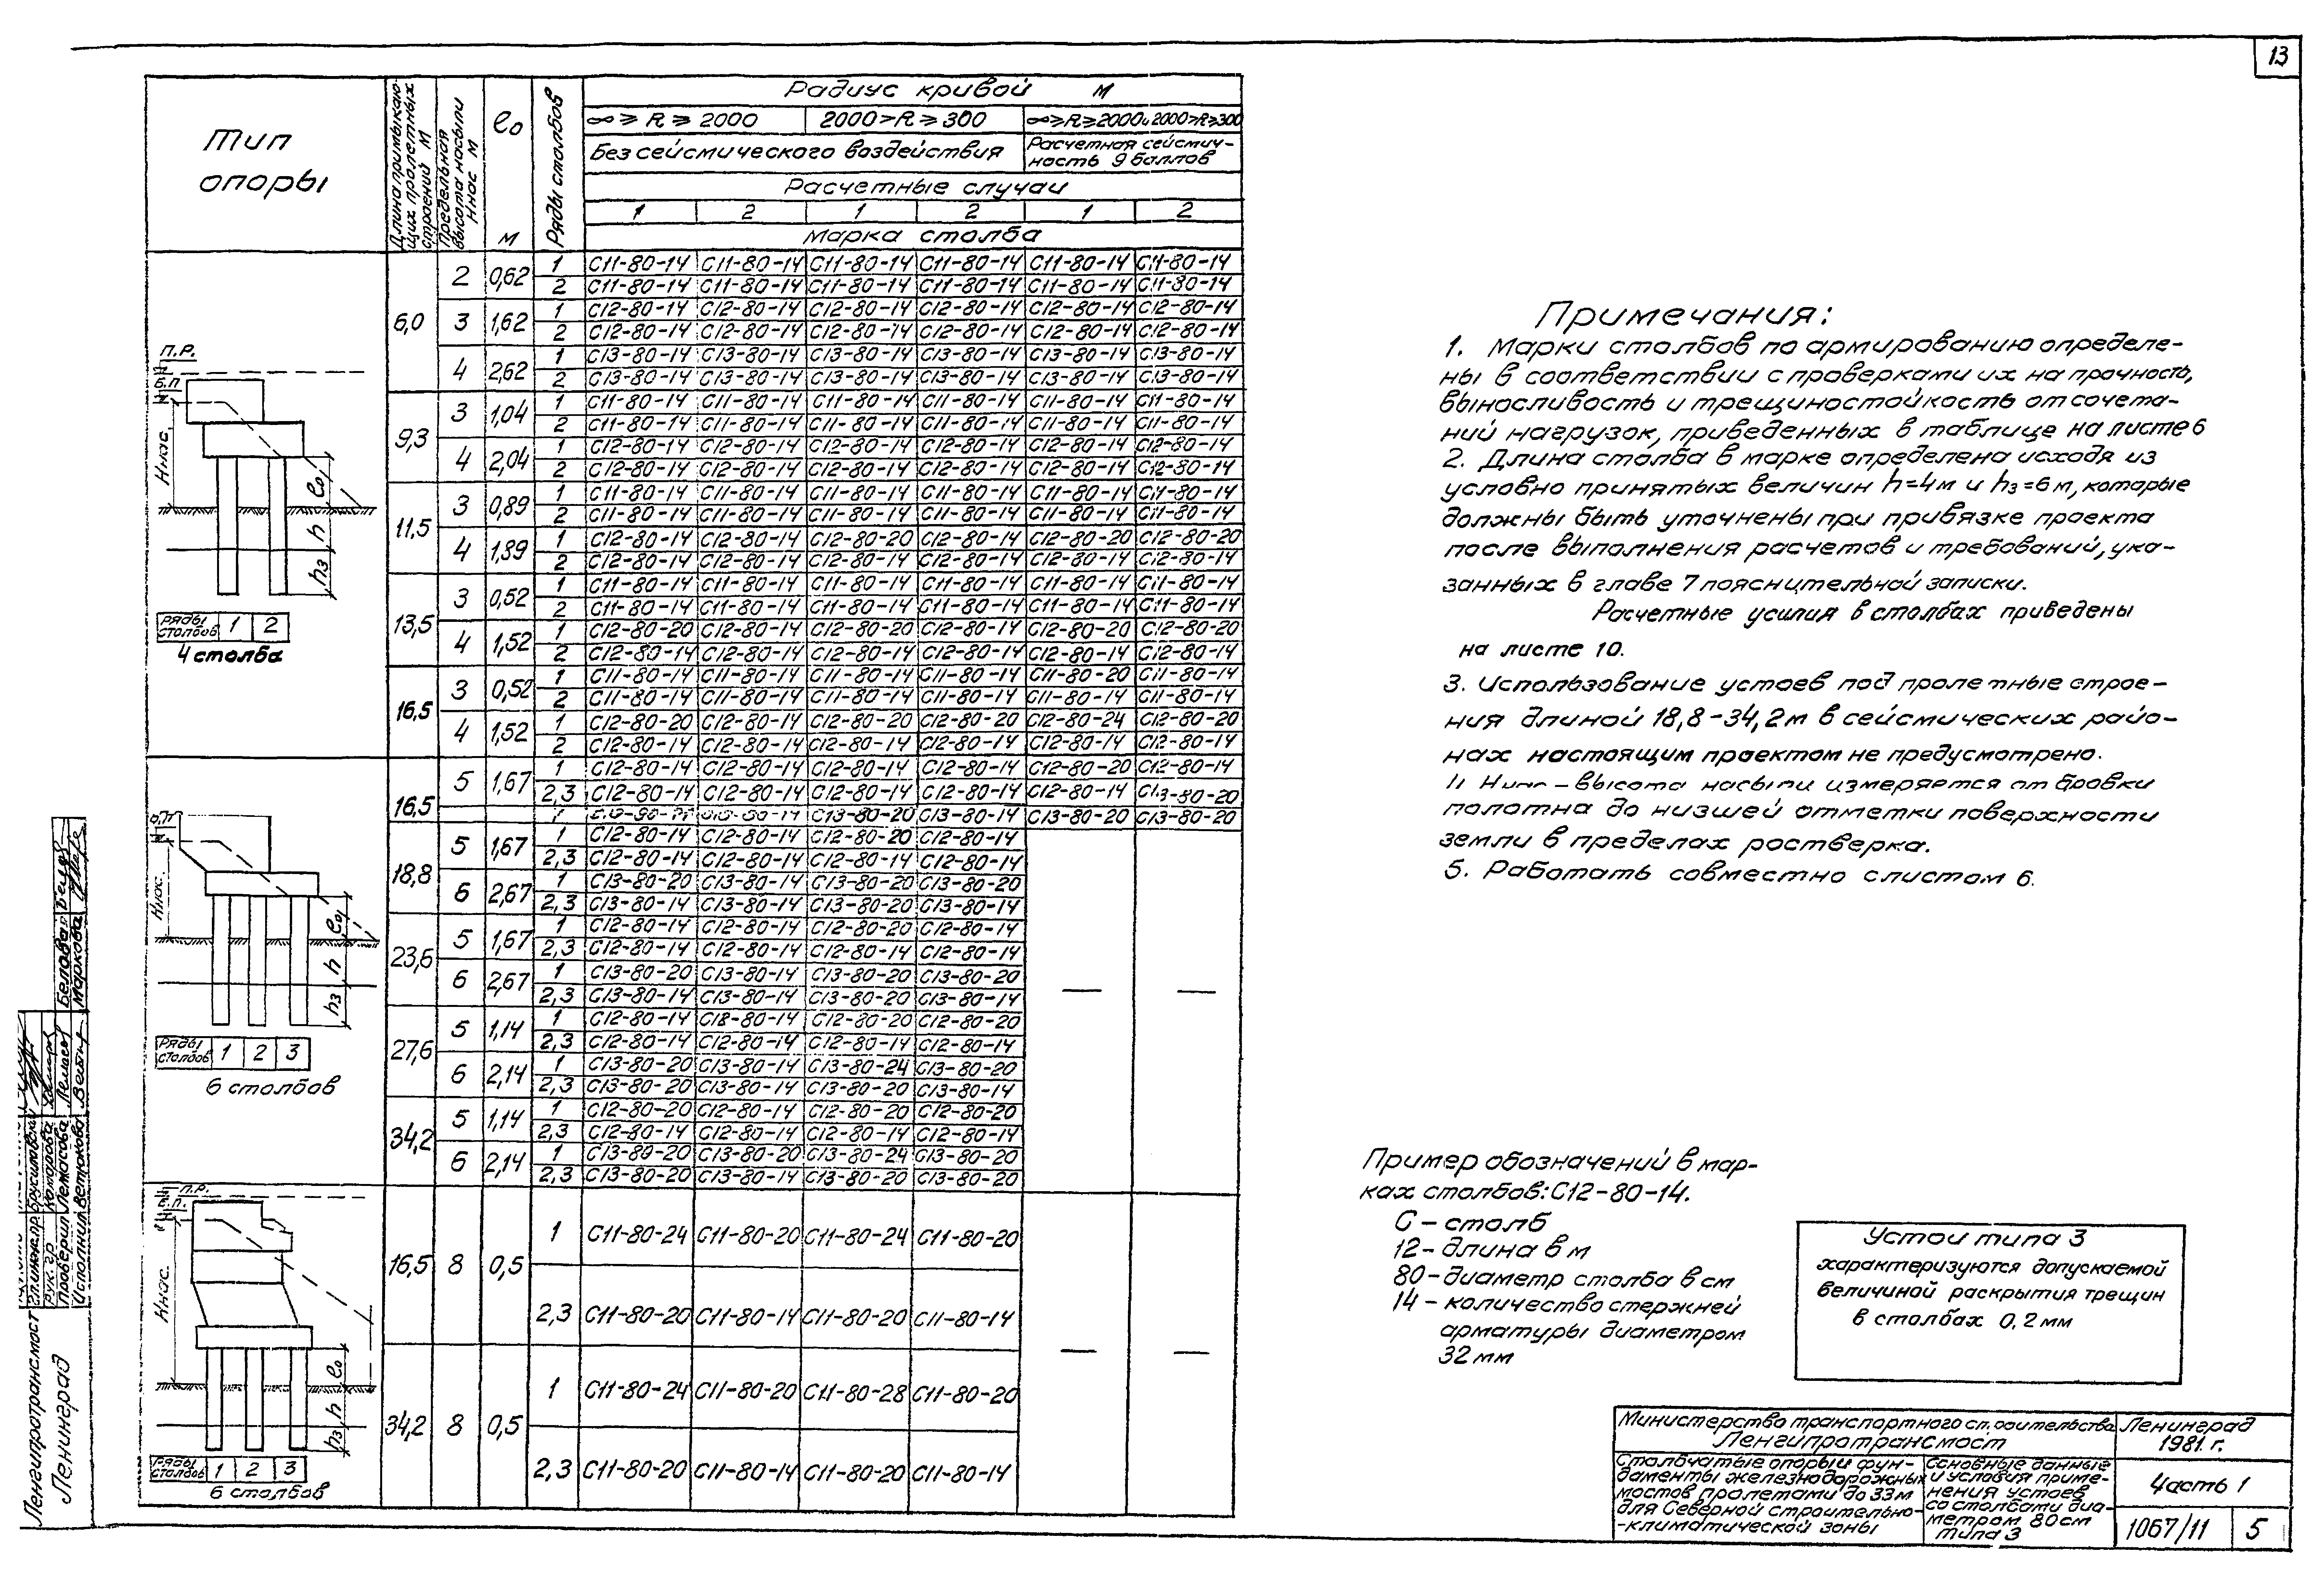 13
Тип опоры
Длина примыкаю-
щих пролетных
строений М
Предельная
высота насыпи
Ннас М
ℓо
м
Ряды столбов
Радиус кривой м
∞ ≥ R ≥ 2000 2000>R ≥ 300 ∞≥R≥2000и2000>R≥300
Без сейсмического воздействия
Расчетная сейсмич-
ность 9 баллов
Расчетные случаи
1 2 1 2 1 2
Марка столба
6,0 2 0,62 1 С11-80-14 С11-80-14 С11-80-14 С11-80-14 С11-80-14 С11-80-14
2 С11-80-14 С11-80-14 С11-80-14 С11-80-14 С11-80-14 С11-80-14
3 1,62 1 С12-80-14 С12-80-14 С12-80-14 С12-80-14 С12-80-14 С12-80-14
2 С12-80-14 С12-80-14 С12-80-14 С12-80-14 С12-80-14 С12-80-14
4 2,62 1 С13-80-14 С13-80-14 С13-80-14 С13-80-14 С13-80-14 С13-80-14
2 С13-80-14 С13-80-14 С13-80-14 С13-80-14 С13-80-14 С13-80-14
9,3 3 1,04 1 С11-80-14 С11-80-14 С11-80-14 С11-80-14 С11-80-14 С11-80-14
2 С11-80-14 С11-80-14 С11-80-14 С11-80-14 С11-80-14 С11-80-14
4 2,04 1 С12-80-14 С12-80-14 С12-80-14 С12-80-14 С12-80-14 С12-80-14
2 С12-80-14 С12-80-14 С12-80-14 С12-80-14 С12-80-14 С12-80-14
11,5 3 0,89 1 С11-80-14 С11-80-14 С11-80-14 С11-80-14 С11-80-14 С11-80-14
2 С11-80-14 С11-80-14 С11-80-14 С11-80-14 С11-80-14 С11-80-14
4 1,89 1 С12-80-14 С12-80-14 С12-80-20 С12-80-14 С12-80-20 С12-80-20
2 С12-80-14 С12-80-14 С12-80-14 С12-80-14 С12-80-14 С12-80-14
13,5 3 0,52 1 С11-80-14 С11-80-14 С11-80-14 С11-80-14 С11-80-14 С11-80-14
2 С11-80-14 С11-80-14 С11-80-14 С11-80-14 С11-80-14 С11-80-14
4 1,52 1 С12-80-20 С12-80-14 С12-80-20 С12-80-14 С12-80-20 С12-80-20
2 С12-80-14 С12-80-14 С12-80-14 С12-80-14 С12-80-14 С12-80-14
16,5 3 0,52 1 С11-80-14 С11-80-14 С11-80-14 С11-80-14 С11-80-20 С11-80-14
2 С11-80-14 С11-80-14 С11-80-14 С11-80-14 С11-80-14 С11-80-14
4 1,52 1 С12-80-20 С12-80-14 С12-80-20 С12-80-20 С12-80-24 С12-80-20
2 С12-80-14 С12-80-14 С12-80-14 С12-80-14 С12-80-14 С12-80-14
16,5 5 1,67 1 С12-80-14 С12-80-14 С12-80-14 С12-80-14 С12-80-20 С12-80-14
2,3 С12-80-14 С12-80-14 С12-80-14 С12-80-14 С12-80-14 С13-80-20
С13-80-20 С13-80-14 С13-80-20 С13-80-20
18,8 5 1,67 1 С12-80-14 С12-80-14 С12-80-20 С12-80-14
2,3 С12-80-14 С12-80-14 С12-80-14 С12-80-14
6 2,67 1 С13-80-20 С13-80-14 С13-80-20 С13-80-20
2,3 С13-80-14 С13-80-14 С13-80-20 С13-80-14
23,6 5 1,67 1 С12-80-14 С12-80-14 С12-80-20 С12-80-14
2,3 С12-80-14 С12-80-14 С12-80-14 С12-80-14
6 2,67 1 С13-80-20 С13-80-14 С13-80-20 С13-80-20
2,3 С13-80-14 С13-80-14 С13-80-20 С13-80-14
— —
27,6 5 1,14 1 С12-80-14 С12-80-14 С12-80-20 С12-80-20
2,3 С12-80-14 С12-80-14 С12-80-14 С12-80-14
6 2,14 1 С13-80-20 С13-80-14 С13-80-24 С13-80-20
2,3 С13-80-20 С13-80-14 С13-80-20 С13-80-14
34,2 5 1,14 1 С12-80-20 С12-80-14 С12-80-20 С12-80-20
2,3 С12-80-14 С12-80-14 С12-80-14 С12-80-14
6 2,14 1 С13-80-20 С13-80-20 С13-80-24 С13-80-20
2,3 С13-80-20 С13-80-14 С13-80-20 С13-80-20
16,5 8 0,5 1 С11-80-24 С11-80-20 С11-80-24 С11-80-20
2,3 С11-80-20 С11-80-14 С11-80-20 С11-80-14
— —
34,2 8 0,5 1 С11-80-24 С11-80-20 С11-80-28 С11-80-20
2,3 С11-80-20 С11-80-14 С11-80-20 С11-80-14
П.Р.
Б.П
Ннас.
ℓо
h
h3
Ряды столбов 1 2
4 столба
Б.П
Ннас.
ℓо
h
h3
Ряды столбов 1 2 3
6 столбов
П.Р.
Б.П.
Ннас.
ℓо
h
h3
Ряды столбов 1 2 3
6 столбов
Примечания:
1. Марки столбов по армированию определе-
ны в соответствии с проверками их на прочность,
выносливость и трещиностойкость от сочета-
ний нагрузок, приведенных в таблице на листе 6
2. Длина столба в марке определена исходя из
условно принятых величин h=4м и h3=6м, которые
должны быть уточнены при привязке проекта
после выполнения расчетов и требований, ука-
занных в главе 7 пояснительной записки.
Расчетные усилия в столбах приведены
на листе 10.
3. Использование устоев под пролетные строе-
ния длиной 18,8-34,2м в сейсмических райо-
нах настоящим проектом не предусмотрено.
Ннас – высота насыпи измеряется от бровки
полотна до низшей отметки поверхности
земли в пределах ростверка.
5. Работать совместно с листом 6.
Пример обозначений в мар-
ках столбов: С12-80-14.
С – столб
12 – длина в м
80 – диаметр столба в см
14 – количество стержней
арматуры диаметром
32 мм
Устои типа 3
характеризуются допускаемой
величиной раскрытия трещин
в столбах 0,2 мм
Министерство транспортного строительства
Ленгипротрансмост
Ленинград
1981 г.
Столбчатые опоры и фун-
даменты железнодорожных
мостов пролетами до 33м
для Северной строительно-
-климатической зоны
Основные данные
и условия приме-
нения устоев
со столбами диа-
метром 80см
типа 3
Часть 1
1067/11 5
Ленгипротрансмост
Ленинград
Гл.инж.пр. Брусиловский
Рук. гр Комарова
Проверил Лемасова
Исполнил Ветюкова
Белова
Маркова